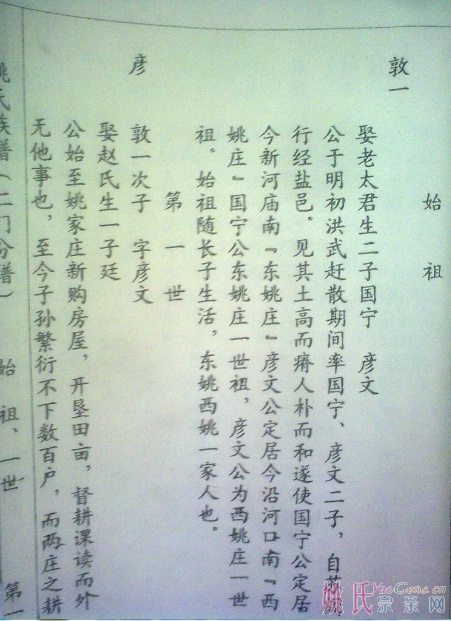 始祖
敦一
娶老太君生二子国宁 彦文
公于明初洪武赶散期间率国宁、彦文二子，自
行经盐邑。见其土高而瘠人朴而和遂使国宁公定居
今新河庙南『东姚庄』彦文公定居今沿河口南『西
姚庄』国宁公东姚庄一世祖，彦文公为西姚庄一世
祖。始祖随长子生活，东姚西姚一家人也。
第一世
彦
敦一次子 字彦文
娶赵氏生一子廷
公始至姚家庄新购房屋，开垦田亩，督耕课读而外
无他事也，至今子孙繁衍不下数百户，而两庄之耕
姚氏族谱（二门分谱） 始祖、一世 第一
姚氏宗亲网
YaoGens.cn